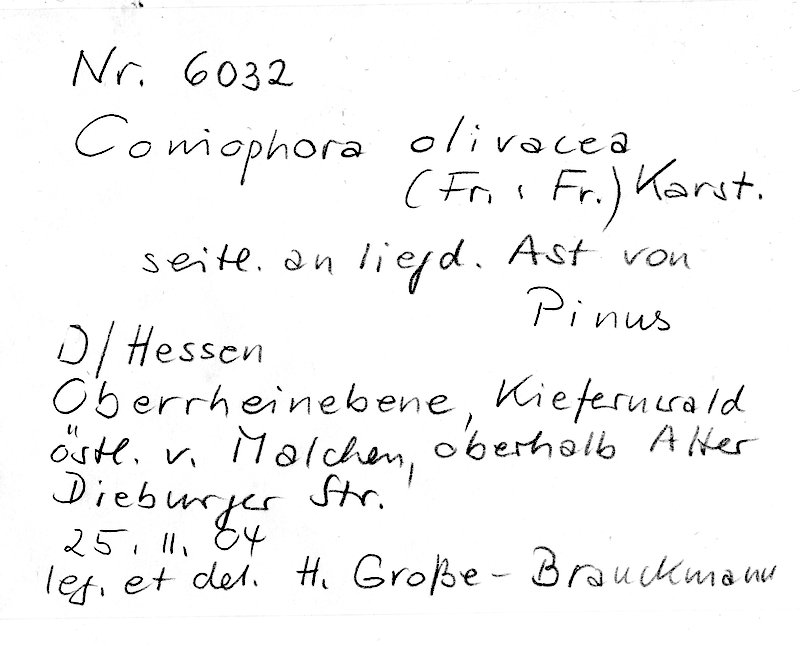 Nr. 6032
Coniophora olivacea
(Fr. : Fr.) Karst.
seitl. an liegd. Ast von
Pinus
D/Hessen
Oberrheinebene, Kiefernwald
östl. v. Malchen, oberhalb Alter
Dieburger Str.
25. 11. 04
leg. et det. H. Große-Brauckmann